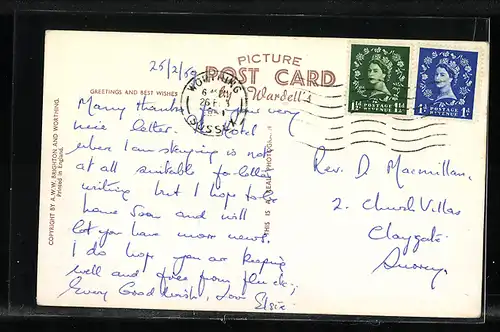 25/2/59
PICTURE
POST CARD
Wardell's
GREETINGS AND BEST WISHES
WORTHING
SUSSEX
1½D 1½D
POSTAGE REVENUE
1D 1D
POSTAGE REVENUE
Many thanks for your very
nice letter. Hotel
where I am staying is not
at all suitable for letter
writing but I hope to be
home soon and will
let you have more news.
I do hope you are keeping
well and free from flu.
Every Good wish, Love Elsie
Rev. D Macmillan.
2. Church Villas
Claygate
Surrey.
COPYRIGHT BY A.W.W. BRIGHTON AND WORTHING.
Printed in England.
THIS IS A REAL PHOTOGRAPH